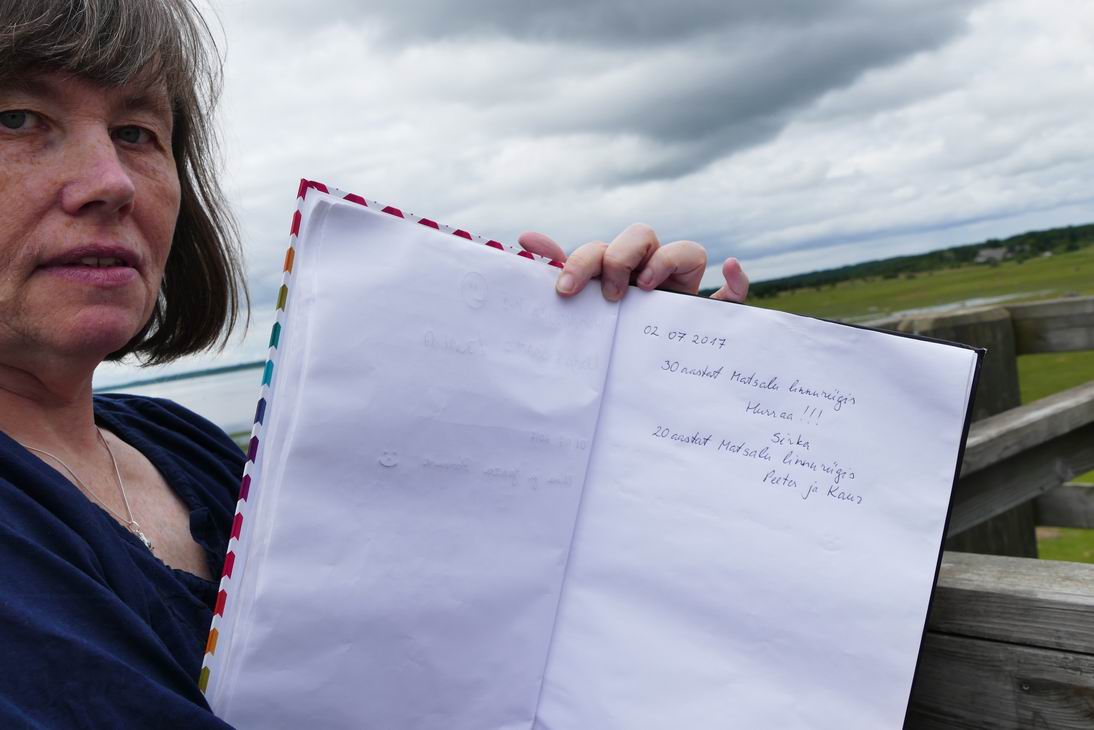 02 07 2017
30 aastat Matsalu linnuriigis
Hurraa !!!
Sirka
20 aastat Matsalu linnuriigis
Peeter ja Kaur